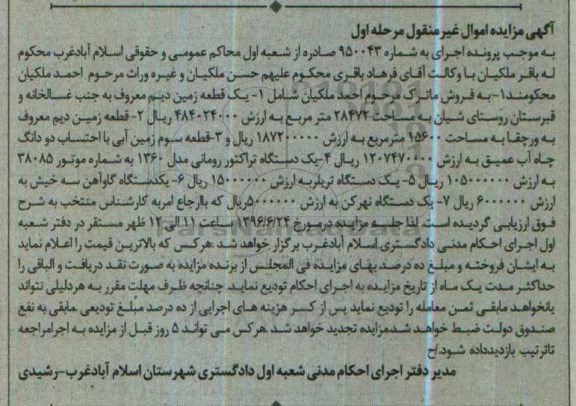 آگهی مزایده اموال غیر منقول مرحله اول
به موجب پرونده اجرای به شماره ۹۵۰۰۴۳ صادره از شعبه اول محاکم عمومی و حقوقی اسلام آبادغرب محکوم
له باقر ملکیان با وکالت آقای فرهاد باقری محکوم علیهم حسن ملکیان و غیره وراث مرحوم احمد ملکیان
محکومند۱-به فروش ماترک مرحوم احمد ملکیان شامل ۱-یک قطعه زمین دیم معروف به جنب غسالخانه و
قبرستان روستای شیان به مساحت ۲۸۴۷۲ متر مربع به ارزش ۴۸۴۰۲۴۰۰۰ ریال ۲-قطعه زمین دیم معروف
به ورجقا به مساحت ۱۵۶۰۰ مترمربع به ارزش ۱۸۷۲۰۰۰۰۰ ریال و ۳-قطعه سوم زمین آبی با احتساب دو دانگ
چاه آب عمیق به ارزش ۱۲۰۷۴۷۰۰۰۰ ریال ۴-یک دستگاه تراکتور رومانی مدل ۱۳۶۰ به شماره موتور ۳۸۰۸۵
به ارزش ۱۰۵۰۰۰۰۰۰ ریال ۵- یک دستگاه تریلر به ارزش ۱۵۰۰۰۰۰۰ ریال ۶- یکدستگاه گاوآهن سه خیش به
ارزش ۶۰۰۰۰۰۰ ریال ۷- یک دستگاه نهرکن به ارزش ۵۰۰۰۰۰۰ریال که باارجاع امر به کارشناس منتخب به شرح
فوق ارزیابی گردیده است. لذا جلسه مزایده در مورخ ۱۳۹۶/۶/۲۴ ساعت ۱۱ الی ۱۲ ظهر مستقر در دفتر شعبه
اول اجرای احکام مدنی دادگستری اسلام آبادغرب برگزار خواهد شد هر کس که بالاترین قیمت را اعلام نماید
به ایشان فروخته و مبلغ ده درصد بهای مزایده فی المجلس از برنده مزایده به صورت نقد دریافت و الباقی را
حداکثر مدت یک ماه از تاریخ مزایده به اجرای احکام تودیع نماید. چنانچه ظرف مهلت مقرر به هر دلیلی نتواند
یا نخواهد مابقی ثمن معامله را تودیع نماید پس از کسر هزینه های اجرایی از ده درصد مبلغ تودیعی مابقی به نفع
صندوق دولت ضبط خواهد شد مزایده تجدید خواهد شد هر کس می تواند ۵ روز قبل از مزایده به اجرا مراجعه
تا ترتیب بازدید داده شود./ح
مدیر دفتر اجرای احکام مدنی شعبه اول دادگستری شهرستان اسلام آبادغرب-رشیدی